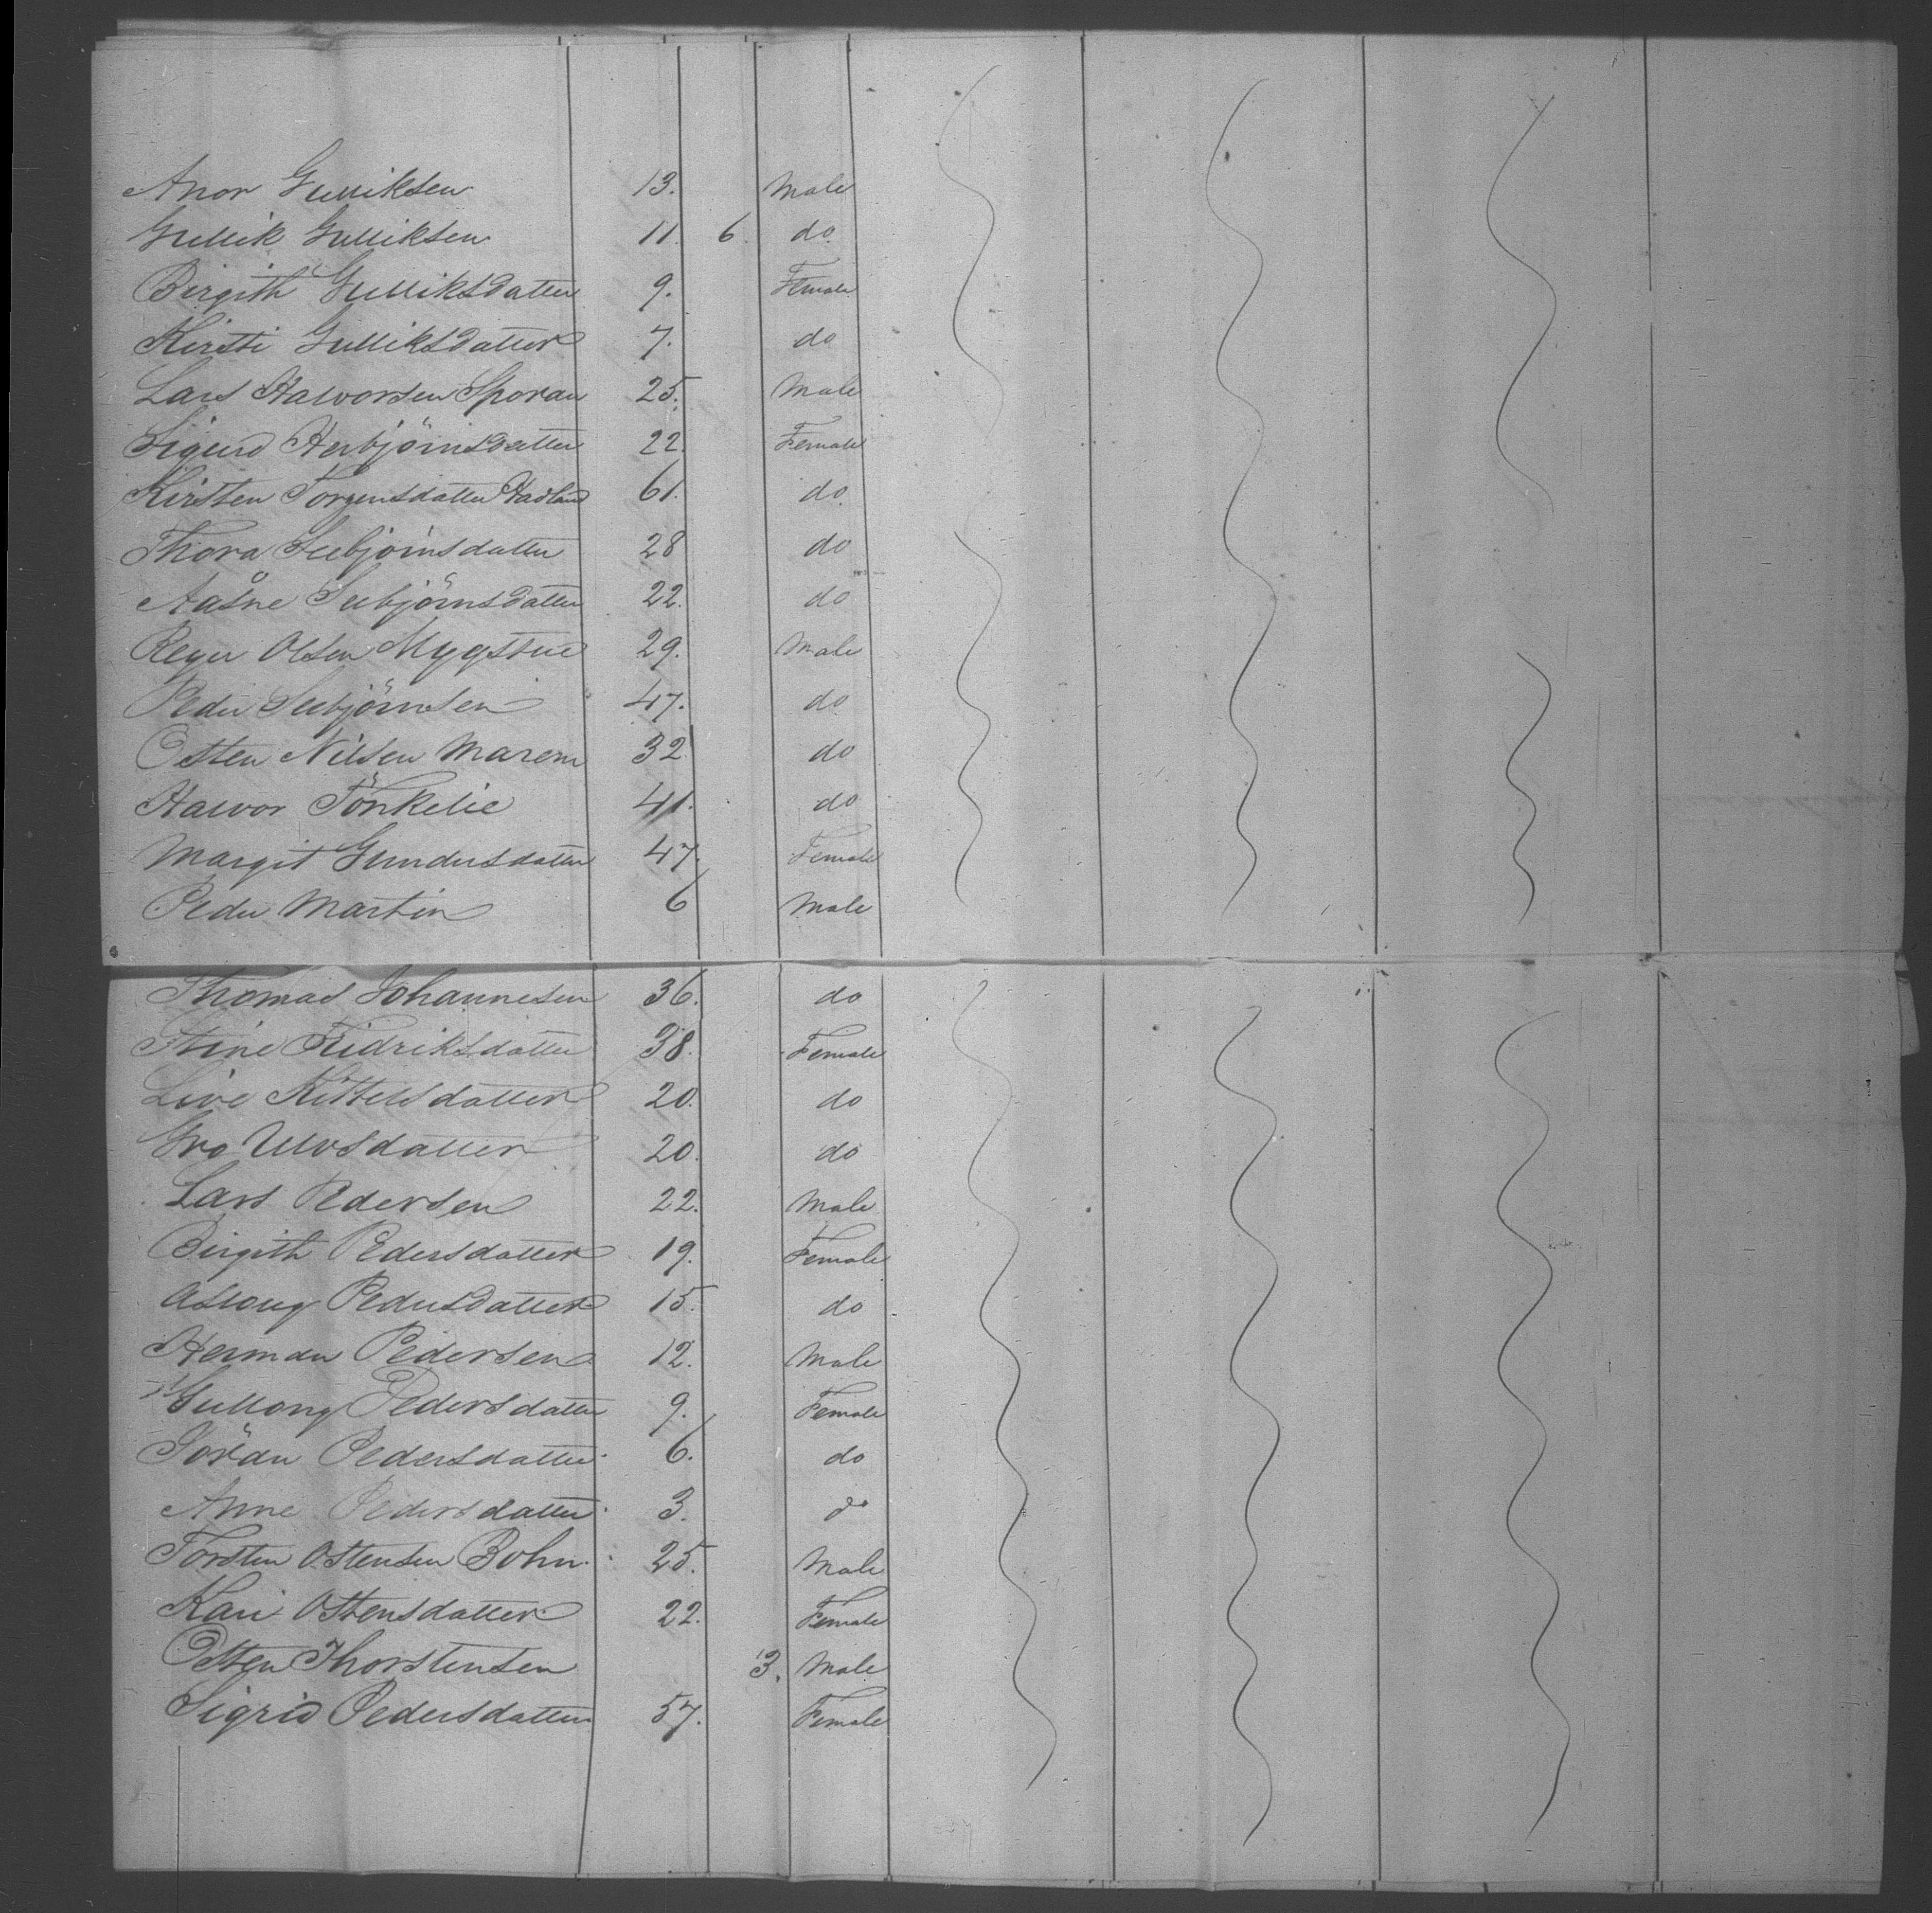 Anor Gulliksen 13. Male
Gullik Gulliksen 11. 6. do
Birgith Gulliksdatter 9. Female
Kirsti Gulliksdatter 7. do
Lars Halvorsen 25. Male
Sigrid Herbjörnsdatter 22. Female
Kirsten 61. do
Thora Seebjörnsdatter 28 do
Aasne Seebjörnsdatter 22. do
Olsen Mygstue 29. Male
Peder Seebjörnsen 47. do
Osten Nilsen 32. do
Halvor Tönkelie 41. do
Margit Gundersdatter 47. Female
Peder Martin 6 Male
Thomas Johannesen 36. do
Stine Fredriksdatter 38. Female
Live Kittelsdatter 20. do
Gro Ulvsdatter 20. do
Lars Pedersen 22. Male
Birgith Pedersdatter 19. Female
Asloug Pedersdatter 15. do
Herman Pedersen 12. Male
Gullong Pedersdatter 9. Female
Jöran Pedersdatter 6. do
Anne Pedersdatter 3. do
Torsten Ostensen Bohn 25. Male
Kari Ostensdatter 22. Female
Osten Thorstensen 3. Male
Sigrid Pedersdatter 57. Female